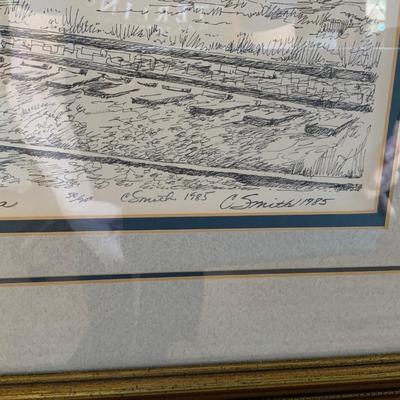 a 50/200 C Smith 1985 C Smith 1985